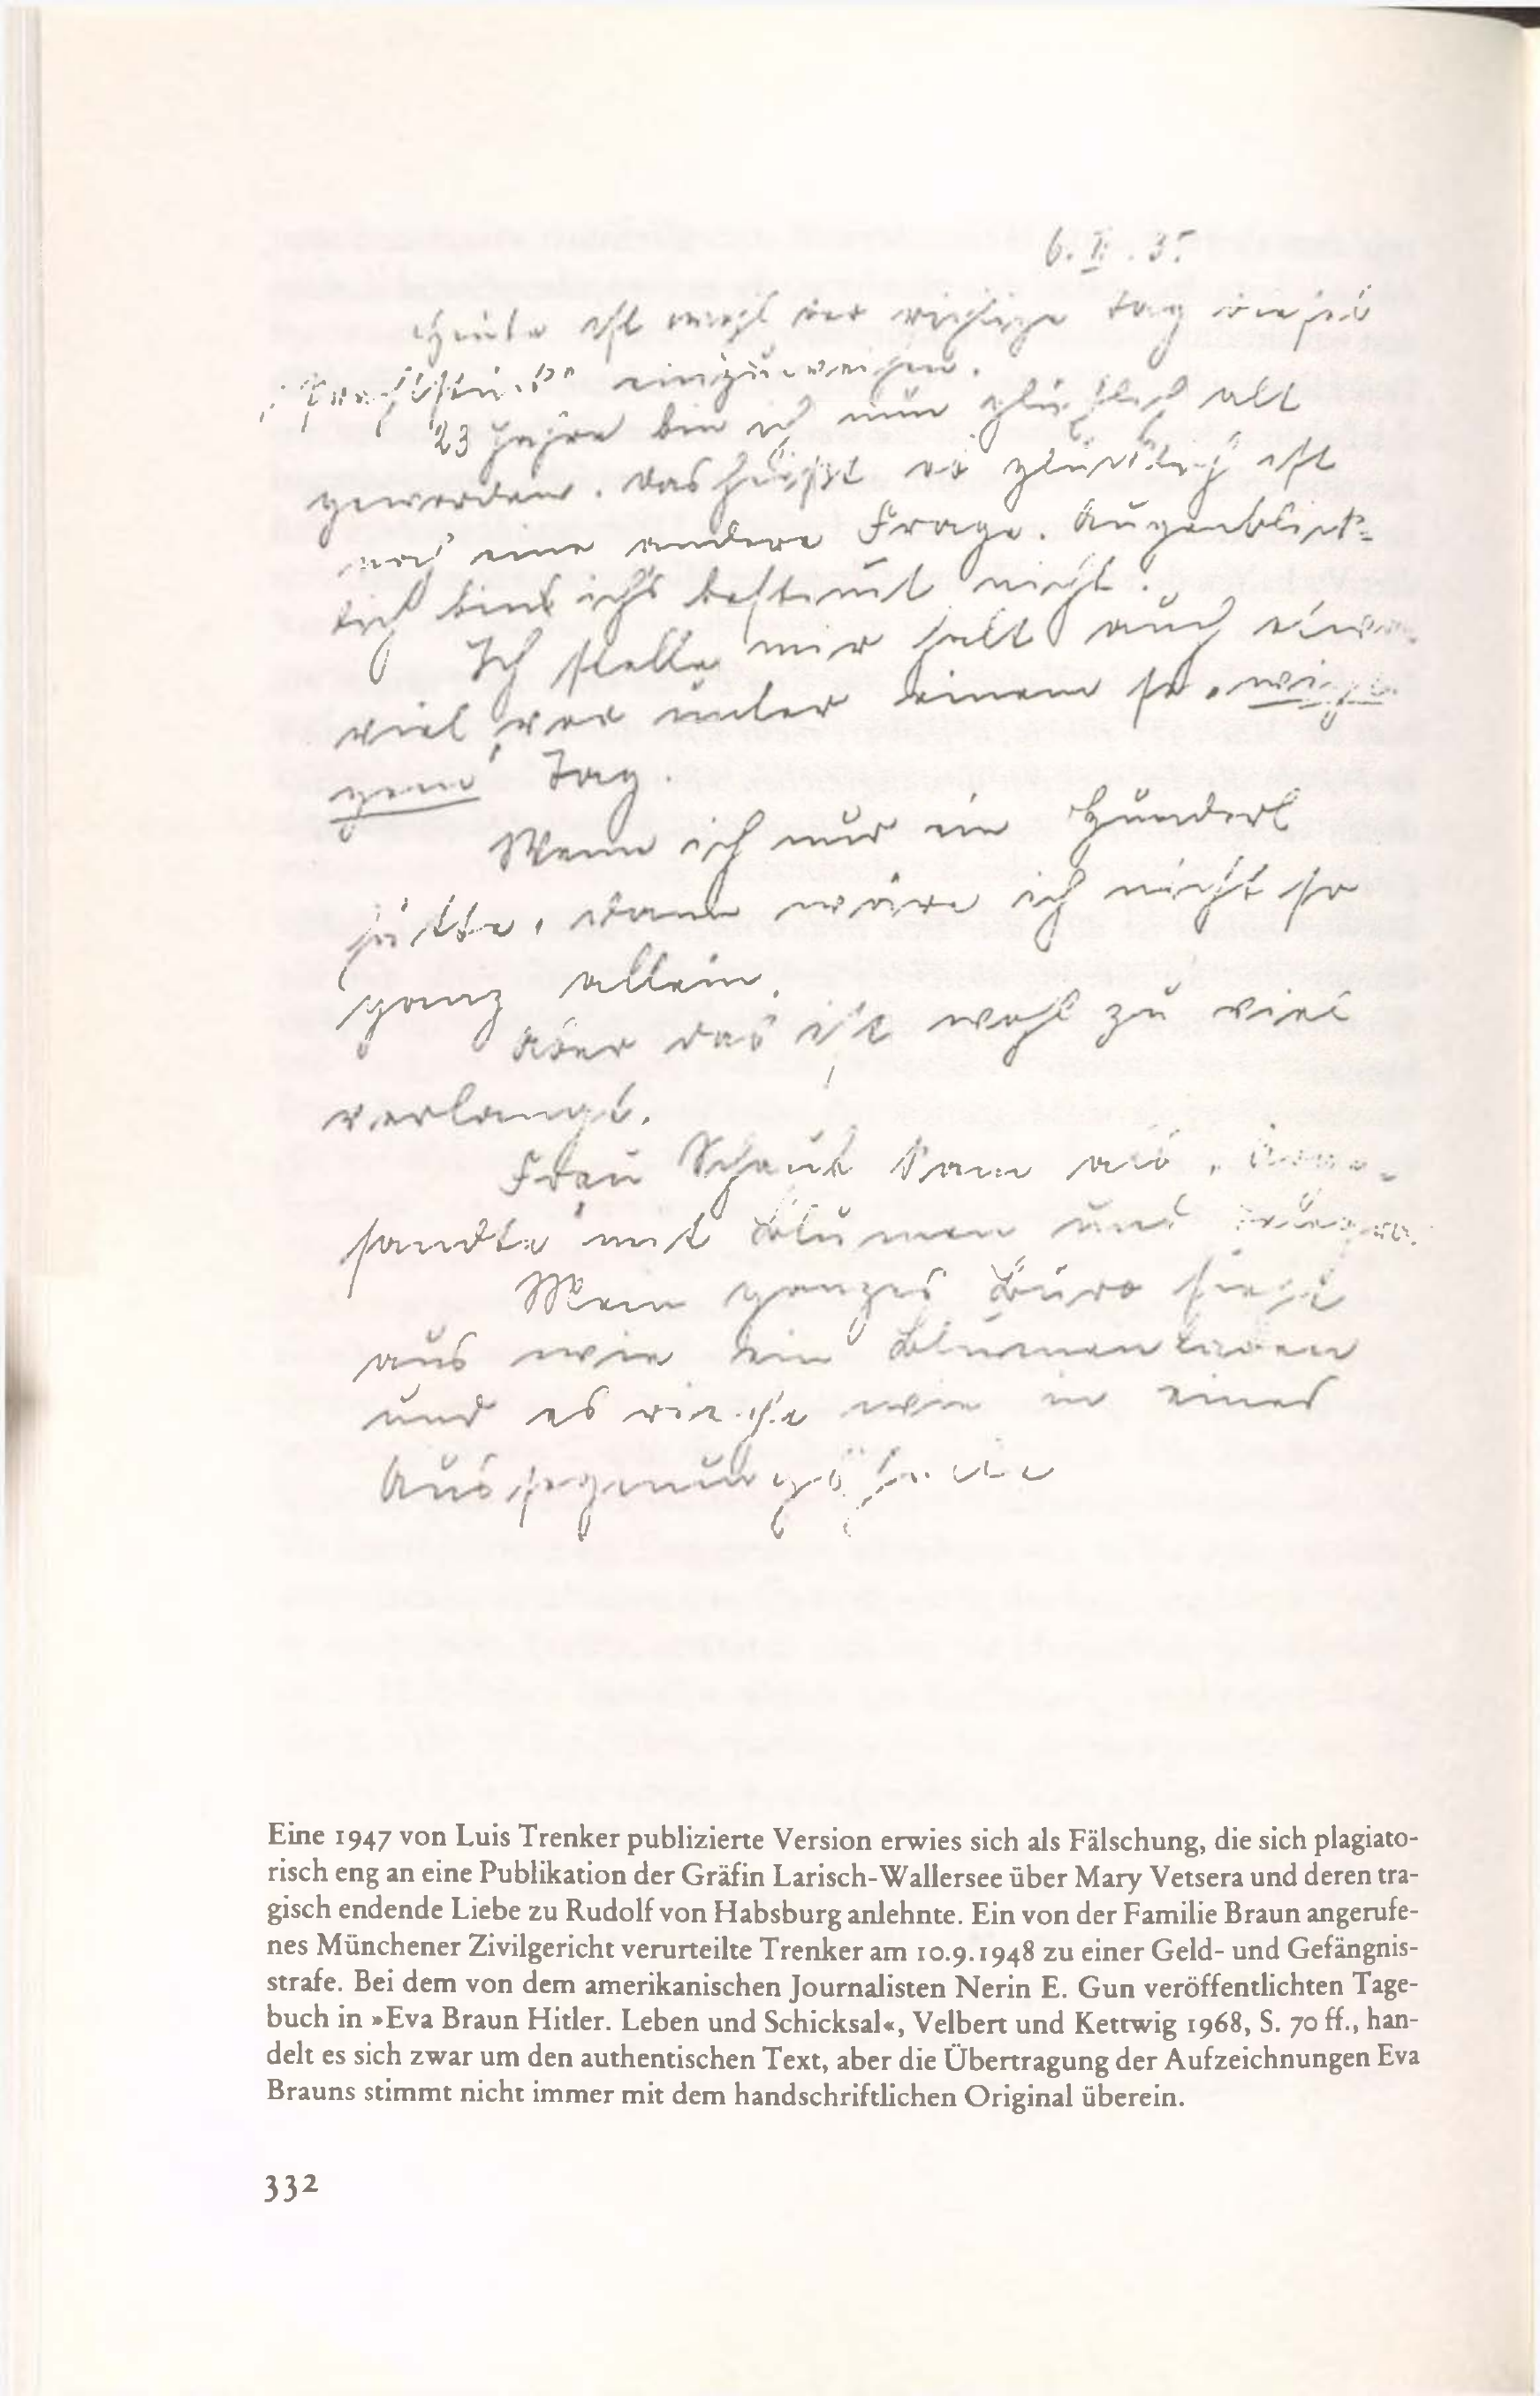 6. II. 35
Heute ist wohl der richtige Tag dieses
„Prachtstück" einzuweihen.
23 Jahre bin ich nun glücklich alt
geworden. Das heißt ob glücklich ist
noch eine andere Frage. Augenblick=
lich bins ich's bestimt nicht.
Ich stelle mir halt auch
viel vor unter einem so „wichti
gem" Tag.
Wenn ich nur ein Hunderl
hätte, dann wäre ich nicht so
ganz allein.
Aber das ist wohl zu viel
verlangt.
Frau Schaub kam als
sandte mit Blumen und
Mein ganzes Büro sieht
aus wie ein Blumenladen
und es riecht wie in einer
Aussegnungshalle
Eine 1947 von Luis Trenker publizierte Version erwies sich als Fälschung, die sich plagiato-
risch eng an eine Publikation der Gräfin Larisch-Wallersee über Mary Vetsera und deren tra-
gisch endende Liebe zu Rudolf von Habsburg anlehnte. Ein von der Familie Braun angerufe-
nes Münchener Zivilgericht verurteilte Trenker am 10.9.1948 zu einer Geld- und Gefängnis-
strafe. Bei dem von dem amerikanischen Journalisten Nerin E. Gun veröffentlichten Tage-
buch in »Eva Braun Hitler. Leben und Schicksal«, Velbert und Kettwig 1968, S. 70 ff., han-
delt es sich zwar um den authentischen Text, aber die Übertragung der Aufzeichnungen Eva
Brauns stimmt nicht immer mit dem handschriftlichen Original überein.
332